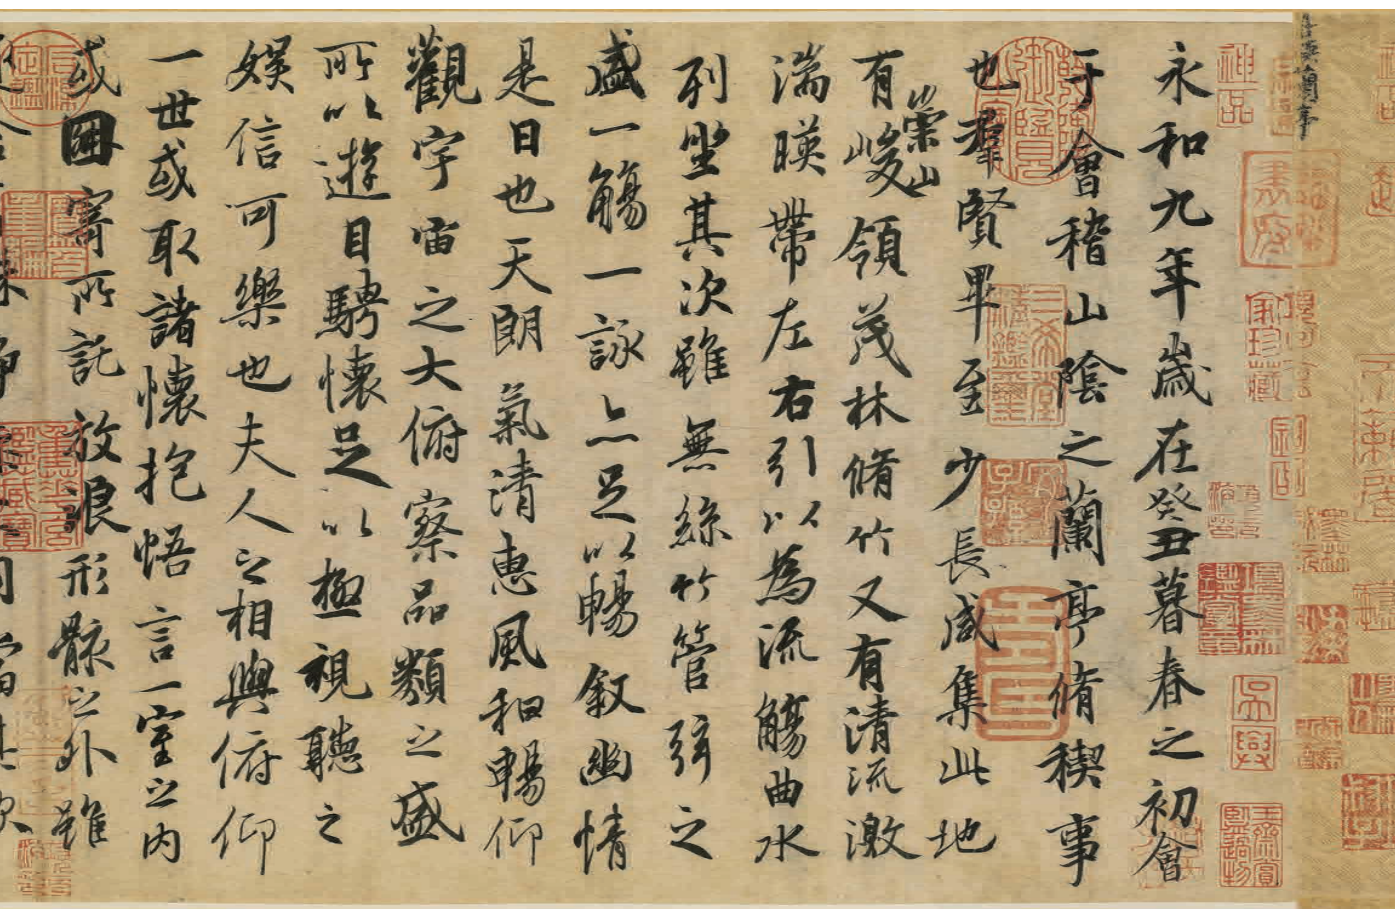 永和九年歲在癸丑暮春之初會
于會稽山陰之蘭亭脩稧事
也羣賢畢至少長咸集此地
有崇山峻領茂林脩竹又有清流激
湍暎帶左右引以為流觴曲水
列坐其次雖無絲竹管弦之
盛一觴一詠亦足以暢敘幽情
是日也天朗氣清惠風和暢仰
觀宇宙之大俯察品類之盛
所以遊目騁懷足以極視聽之
娛信可樂也夫人之相與俯仰
一世或取諸懷抱悟言一室之內
或因寄所託放浪形骸之外雖
神品
三希堂精鑑璽
宜子孫
吳興